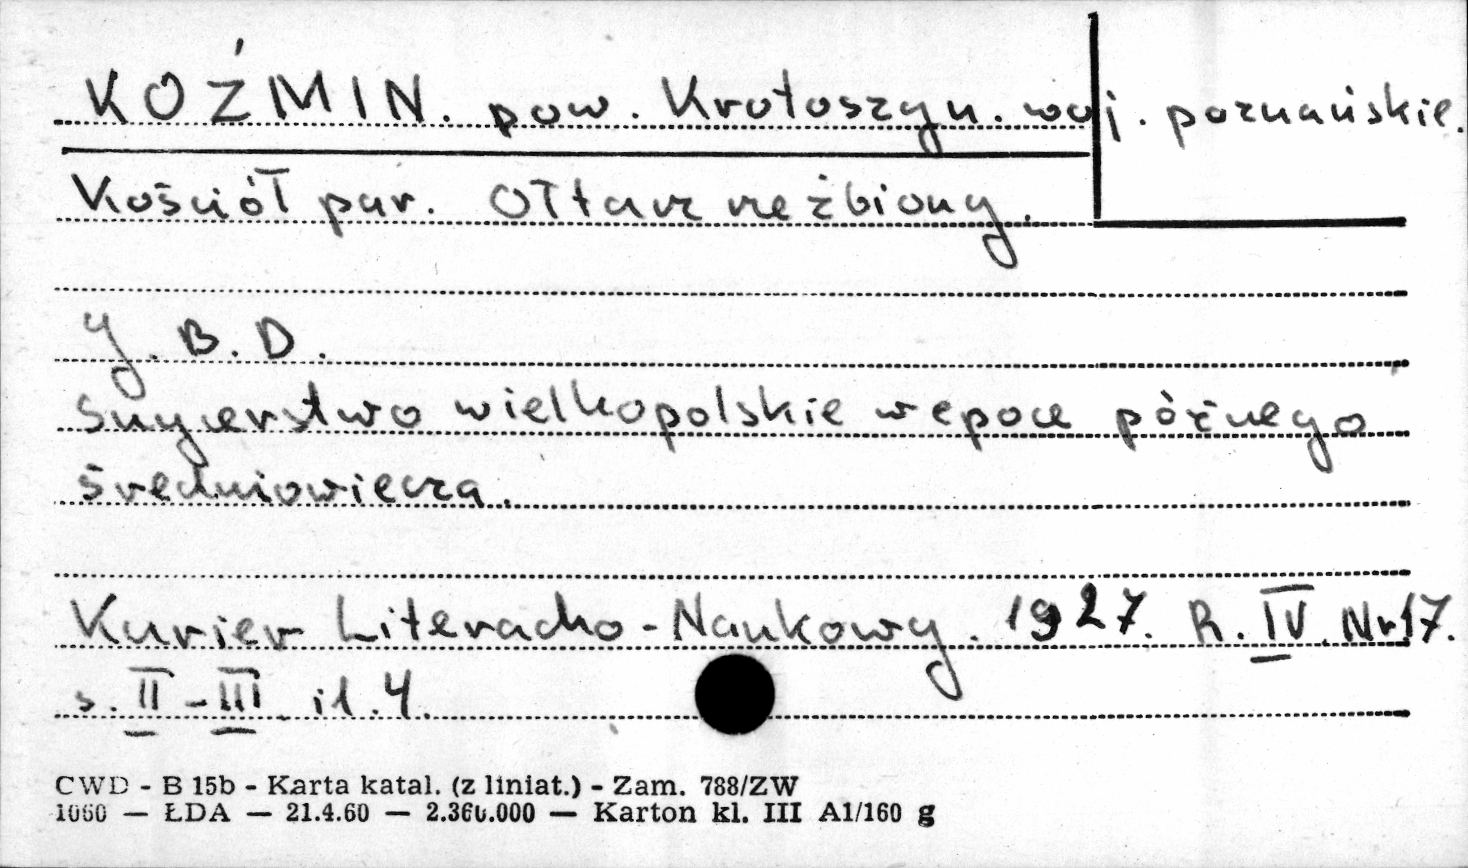 KOŹMIN. pow. Krotoszyn. woj. poznańskie.
Kościół par. Ołtarz rzeźbiony.
y. B. D.
Snycerstwo wielkopolskie w epoce późnego
średniowiecza.
Kurier Literacko-Naukowy. 1927. R. IV. Nr 17.
s. II-III il. 4.
CWD - B 15b - Karta katal. (z liniat.) - Zam. 788/ZW
1060 — ŁDA — 21.4.60 — 2.360.000 — Karton kl. III A1/160 g